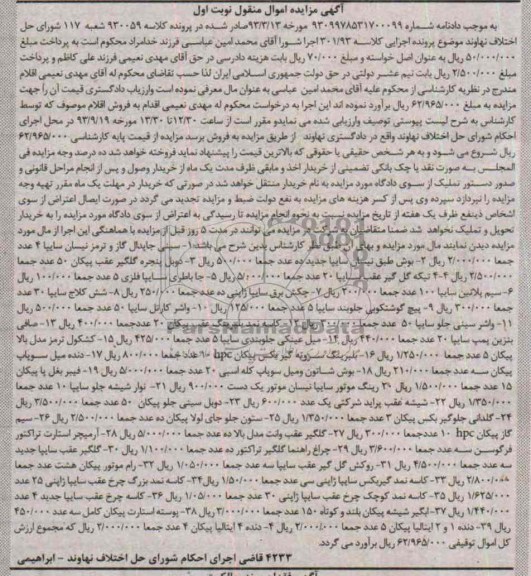 آگهی مزایده اموال منقول نوبت اول
به موجب دادنامه شماره ۹۳۰۹۹۷۸۵۳۱۷۰۰۰۹۹ مورخه ۹۳/۳/۱۳ صادر شده در پرونده کلاسه ۹۳۰۰۵۹ شعبه ۱۱۷ شورای حل
اختلاف نهاوند موضوع پرونده اجرایی کلاسه ۳۰۱/۹۳ اجرا شورا آقای محمدامین عباسی فرزند خدامراد محکوم است به پرداخت مبلغ
۵۰/۰۰۰/۰۰۰ ریال به عنوان اصل خواسته و مبلغ ۷۰/۰۰۰ ریال بابت هزینه دادرسی در حق آقای مهدی نعیمی فرزند علی کاظم و پرداخت
مبلغ ۲/۵۰۰/۰۰۰ ریال بابت نیم عشر دولتی در حق دولت جمهوری اسلامی ایران لذا حسب تقاضای محکوم له آقای مهدی نعیمی اقلام
مندرج در نظریه کارشناسی از محکوم علیه آقای محمدامین عباسی به عنوان مال معرفی نموده است وارزیاب دادگستری قیمت آن را جهت
مزایده به مبلغ ۶۲/۹۶۵/۰۰۰ ریال برآورد نموده اند این اجرا به درخواست محکوم له مهدی نعیمی اقدام به فروش اقلام موصوف که توسط
کارشناس به شرح لیست پیوستی توصیف وارزیابی شده می نمایدو مقرر است از ساعت ۱۲/۳۰ تا ۱۳/۳۰ مورخ ۹۳/۹/۱۹ در محل اجرای
احکام شورای حل اختلاف نهاوند واقع در دادگستری نهاوند از طریق مزایده به فروش برسد مزایده از قیمت پایه کارشناسی ۶۲/۹۶۵/۰۰۰
ریال شروع می شود و به هر شخص حقیقی یا حقوقی که بالاترین قیمت را پیشنهاد نماید فروخته خواهد شد ده درصد وجه مزایده فی
المجلس به صورت نقد یا چک بانکی تضمینی از خریدار اخذ و مابقی ظرف مدت یک ماه از خریدار وصول و پس از انجام مراحل قانونی و
صدور دستور تملیک از سوی دادگاه مورد مزایده به نام خریدار منتقل خواهد شد در صورتی که خریدار در مهلت یک ماه مقرر تهیه وجه
مزایده را نپردازد سپرده وی پس از کسر هزینه های مزایده به نفع دولت ضبط و مزایده تجدید می گردد در صورت ایصال اعتراض از سوی
اشخاص ذینفع ظرف یک هفته از تاریخ مزایده نسبت به نحوه انجام مزایده تا رسیدگی به اعتراض از سوی دادگاه مورد مزایده را به خریدار
تحویل و تملیک نخواهد شد ضمنا متقاضیان شرکت در مزایده می توانند در مدت ۵ روز قبل از مزایده با هماهنگی این اجرا از مال مورد
مزایده دیدن نمایند مال مورد مزایده و بهای کارشناس بدین شرح می باشد:۱- سینی جاپدال گاز و ترمز نیسان سایپا ۴ عدد
جمعا ۲/۰۰۰/۰۰۰ ریال ۲- بوش طبق سایپا جدید ده عدد جمعا ۵۰۰/۰۰۰ ریال ۳- دوبل پنجره گلگیر عقب پیکان ۵۰ عدد جمعا
۲/۵۰۰/۰۰۰ ریال ۴- تیکه گل گیر عقب سایپا ۲۰ عدد جمعا ۵/۰۰۰/۰۰۰ ریال ۵- جا باطری سایپا فلزی ۵ عدد جمعا ۱۰۰/۰۰۰ ریال
۶- سیم پلاتین سایپا ۱۰۰ عدد جمعا ۲۰۰/۰۰۰ ریال ۷- چکش برق سایپا ژاپنی ده عدد جمعا ۲۵۰/۰۰۰ ریال ۸- شش کلاج سایپا ۳۰ عدد
جمعا ۳۰۰/۰۰۰ ریال ۹- پیچ گوشتکوبی جلوبند سایپا ۵ عدد جمعا ۱۲۵/۰۰۰ ریال ۱۰- واشر کارتل سایپا ۵۰ عدد جمعا ۵۰۰/۰۰۰ ریال
۱۱- واشر سینی جلو سایپا ۵۰ عدد جمعا ... کاسه نمد بلبرینگ عقب پیکان ۲۰ عددجمعا ۴۰۰/۰۰۰ ریال ۱۳- صافی
بنزین پمپ سایپا ۲۰ عدد جمعا ۴۴۰/۰۰۰ ریال ۱۴- میل عینکی جلوبندی سایپا ۵ عدد جمعا ۴۲۵/۰۰۰ ریال ۱۵- کشکول ترمز مدل بالا
پیکان ۵ عدد جمعا ۱/۲۵۰/۰۰۰ ریال ۱۶- بلبرینگ گیربکس پیکان hpc ۱۰ عدد جمعا ۸۰۰/۰۰۰ ریال ۱۷- دنده میل سوپاپ
پیکان سه عدد جمعا ۲۱۰/۰۰۰ ریال ۱۸- بوش شاتون ومیل سوپاپ کله اسبی ۲۰ عدد جمعا ۵/۰۰۰/۰۰۰ ریال ۱۹- فیبر بغل پا پیکان
۱۵ عدد جمعا ۱/۵۰۰/۰۰۰ ریال ۲۰ رینگ موتور سایپا نیسان موتور یک دست ۹۰۰/۰۰۰ ریال ۲۱- نوار شیشه جلو سایپا ۱۰ عدد جمعا
۱/۳۵۰/۰۰۰ ریال ۲۲- شیشه عقب پراید شرکتی یک عدد ۶۰۰/۰۰۰ ریال ۲۳- دوبل سینی جلو پیکان ۵۰ عدد جمعا ۳/۵۰۰/۰۰۰ ریال
۲۴- گلدانی جلوگیر بکس پیکان ۳ عدد جمعا ۱/۳۵۰/۰۰۰ ریال ۲۵- ستون جلو جای لولا پیکان ده عدد جمعا ۲/۵۰۰/۰۰۰ ریال ۲۶- سیم
گاز پیکان hpc ۱۰ عددجمعا ۳۰۰/۰۰۰ ریال ۲۷- گلگیر عقب وانت مدل بالا ده عدد جمعا ۵/۰۰۰/۰۰۰ ریال ۲۸- آرمیچر استارت تراکتور
فرگوسن سه عدد جمعا ۳/۶۰۰/۰۰۰ ریال ۲۹- چراغ راهنما گلگیر تراکتور ده عدد جمعا ۱/۱۰۰/۰۰۰ ریال ۳۰- گلگیر عقب سایپا جدید
سه عدد جمعا ۴/۵۰۰/۰۰۰ ریال ۳۱- روکش گل گیر عقب سایپا سه عدد جمعا ۱/۰۵۰/۰۰۰ ریال ۳۲- رام موتور پیکان هشت عدد جمعا
۲/۸۰۰/۰۰۰ ریال ۳۳- کاسه نمد گیربکس سایپا ژاپنی سی عدد جمعا ۱/۵۰۰/۰۰۰ ریال ۳۴- کاسه نمد بزرگ چرخ عقب سایپا ژاپنی ۲۵ عدد
۱/۶۲۵/۰۰۰ ریال ۳۵- کاسه نمد کوچک چرخ عقب سایپا ژاپنی ۳۰ عدد جمعا ۱/۰۵۰/۰۰۰ ریال ۳۶- کاسه چرخ عقب سایپا جدید ۴ عدد
۱/۴۴۰/۰۰۰ ریال ۳۷- ابگیر شیشه پیکان بلند و کوتاه ۱۵۰ عدد جمعا ۲/۰۰۰/۰۰۰ ریال ۳۸- پوسته استارت پیکان کامل سه عدد ۴۵۰/۰۰۰
ریال ۳۹- دنده ۱ و ۲ ایتالیا پیکان ۵ عدد جمعا ۲/۰۰۰/۰۰۰ ریال ۴۰- دنده ۴ ایتالیا پیکان ۴ عدد جمعا ۲/۰۰۰/۰۰۰ ریال که مجموع ارزش
کل اموال توقیفی ۶۲/۹۶۵/۰۰۰ ریال برآورد می گردد.
۴۲۳۳ قاضی اجرای احکام شورای حل اختلاف نهاوند - ابراهیمی